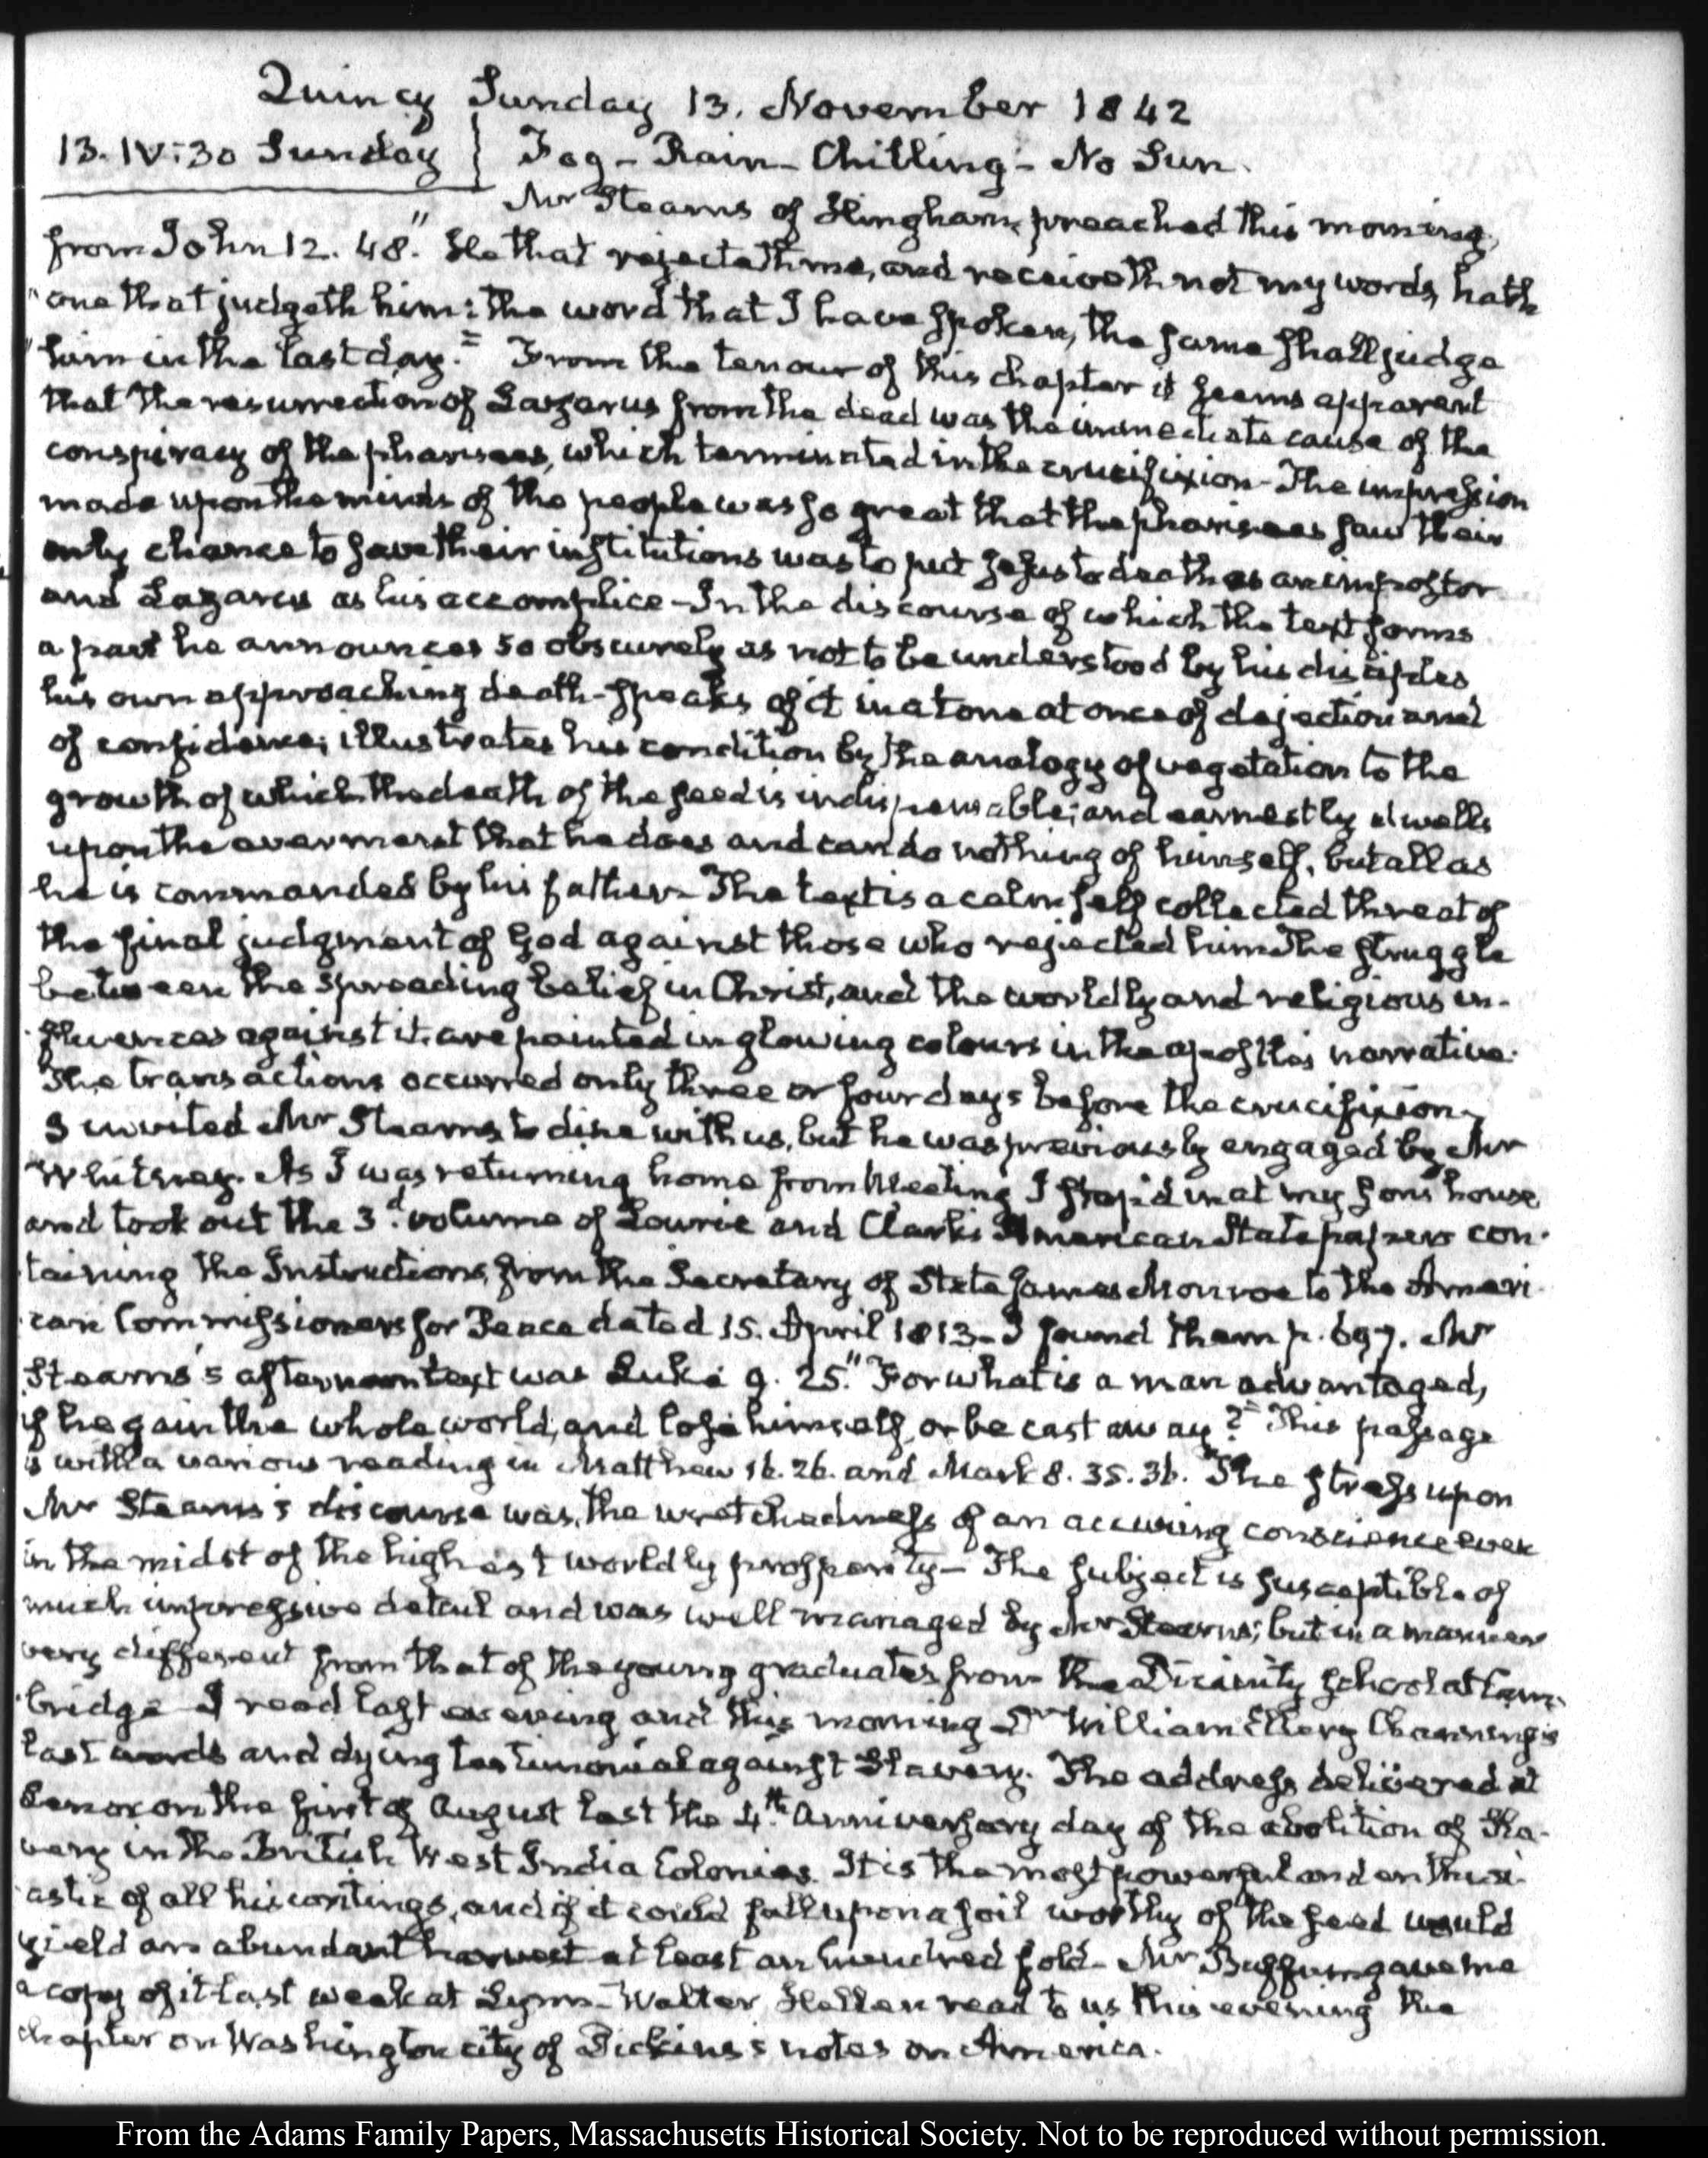 Quincy Sunday 13. November 1842
13. IV:30 Sunday } Fog - Rain - Chilling - No Sun.
Mr Stearns of Hingham, preached this morning,
from John 12. 48. "He that rejecteth me, and receiveth not my words, hath
"one that judgeth him: the word that I have spoken, the same shall judge
"him in the last day." From the tenour of this chapter it seems apparent
that the resurrection of Lazarus from the dead was the immediate cause of the
conspiracy of the pharisees, which terminated in the crucifixion - The impression
made upon the minds of the people was so great that the pharisees saw their
only chance to save their institutions was to put Jesus to death as an impostor
and Lazarus as his accomplice - In the discourse of which the text forms
a part he announces so obscurely as not to be understood by his disciples
his own approaching death - speaks of it in a tone at once of dejection and
of confidence; illustrates his condition by the analogy of vegetation to the
growth of which the death of the seed is indispensable; and earnestly dwells
upon the averment that he does and can do nothing of himself, but all as
he is commanded by his father - The text is a calm self collected threat of
the final judgment of God against those who rejected him The struggle
between the spreading belief in Christ, and the worldly and religious in-
fluences against it. are painted in glowing colours in the apostles narrative.
The transactions occurred only three or four days before the crucifixion -
I invited Mr Stearns to dine with us, but he was previously engaged by Mr
Whitney. As I was returning home from Meeting I stop'd in at my sons house
and took out the 3d. volume of Lowrie and Clarke's American State papers con-
taining the Instructions, from the Secretary of State James Monroe to the Ameri-
can Commissioners for Peace dated 15. April 1813 - I found them p. 697. Mr
Stearns's afternoon text was Luke 9. 25. "For what is a man advantaged,
if he gain the whole world, and lose himself, or be cast away?" This passage
is with a various reading in Matthew 16. 26. and Mark 8. 35. 36. The stress upon
Mr Stearns's discourse was, the wretchedness of an accusing conscience even
in the midst of the highest worldly prosperity - The subject is susceptible of
much impressive detail and was well managed by Mr Stearns; but in a manner
very different from that of the young graduates from the Divinity school at Cam-
bridge I read last evening and this morning Dr William Ellery Channing's
last words and dying testimonial against Slavery. The address delivered at
Lenox on the first of August last the 4th. anniversary day of the abolition of Sla-
very in the British West India Colonies. It is the most powerful and enthusi-
astic of all his writings, and if it could fall upon a soil worthy of the seed would
yield an abundant harvest at least an hundred fold - Mr Buffum gave me
a copy of it last week at Lynn - Walter Hellen read to us this evening the
chapter on Washington city of Dickins's notes on America.
From the Adams Family Papers, Massachusetts Historical Society. Not to be reproduced without permission.